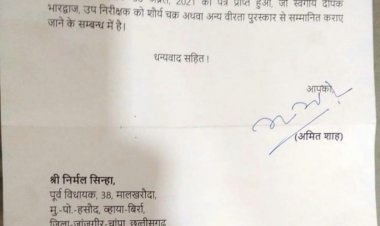 अप्रैल, 2021 का पत्र प्राप्त हुआ, जो स्वर्गीय दीपक
भारद्वाज, उप निरीक्षक को शौर्य चक्र अथवा अन्य वीरता पुरस्कार से सम्मानित कराए
जाने के सम्बन्ध में है।
धन्यवाद सहित !
आपको,
(अमित शाह)
श्री निर्मल सिन्हा,
पूर्व विधायक, 38, मालखरौदा,
मु.-पो.-हसौद, व्हाया-बिर्रा,
जिला-जांजगीर-चांपा, छत्तीसगढ़